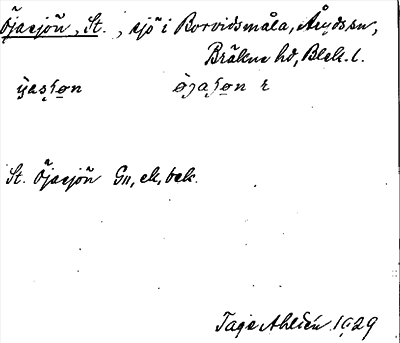 Öjasjön, St., sjö i Borvidsmåla, Åryds sn,
Bräkne hd, Blek. l.
St. Öjasjön Gn, ek, bek.
Tage Ahldén 1929